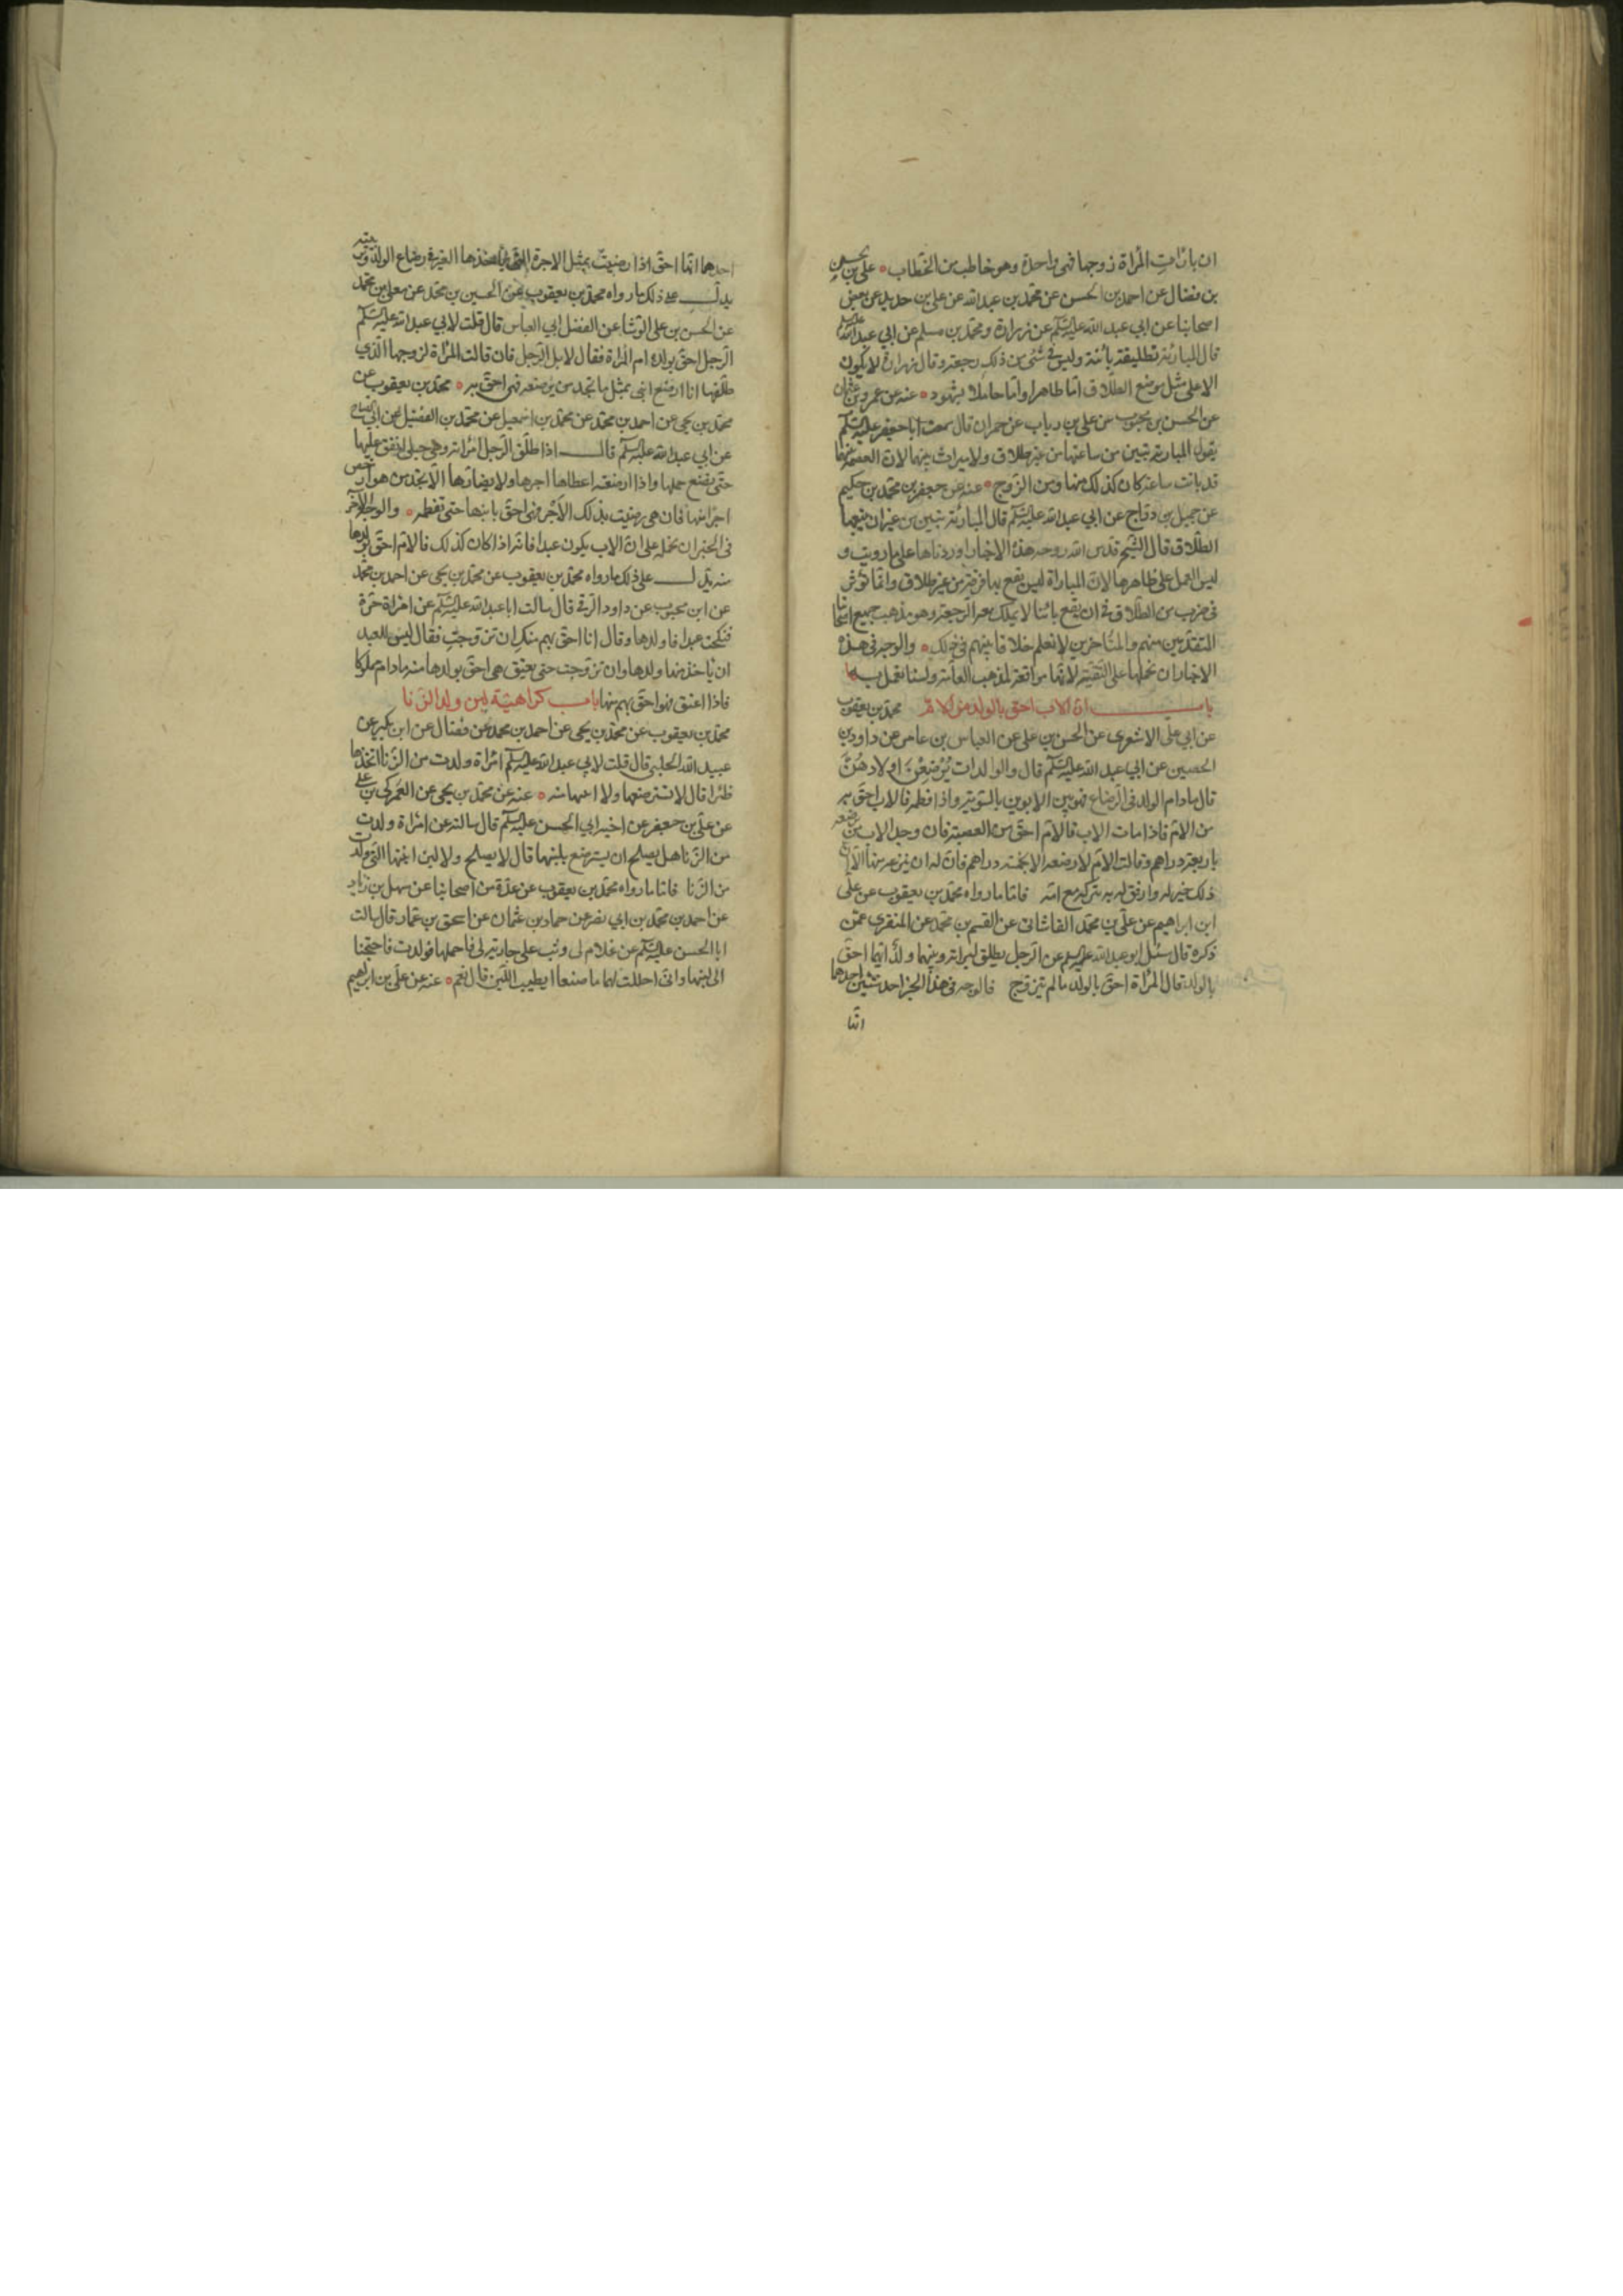 ان بارات المراة زوجها فهى واحدة وهو خاطب من الخطاب علي بن الحسن
بن فضال عن احمد بن الحسن عن محمد بن عبدالله عن علي بن حديد عن بعض
اصحابنا عن ابي عبد الله عليه السلم عن زرارة ومحمد بن مسلم عن ابي عبدالله عليه السلم
قال المبارئة تطليقة بائنة وليس في شئ من ذلك رجعة وقال زرارة لا يكون
الا على مثل موضع الطلاق اما طاهرا واما حاملا بشهود عنه عن عمرو بن عثمان
عن الحسن بن محبوب عن علي بن رياب عن حمران قال سمعت ابا جعفر عليه السلم
يقول المبارئة تبين من ساعتها من غير طلاق ولا ميراث بينهما لان العصمة منها
قد بانت ساعة كان كذلك منها ومن الزوج عنه عن جعفر بن محمد بن حكيم
عن جميل بن دراج عن ابي عبد الله عليه السلم قال المبارئة تبين من غير ان يتبعها
الطلاق قال الشيخ قدس الله روحه هذه الاخبار اوردناها على ما رويت و
ليس العمل على ظاهرها لان المباراة ليس يقع بها فرقة من غير طلاق وانما تؤثر
في ضرب من الطلاق في ان يقع بائنا لا يملك معه الرجعة وهو مذهب جميع اصحابنا
المتقدمين منهم والمتاخرين لا نعلم خلافا بينهم في ذلك والوجه في هذه
الاخبار ان نحملها على التقية لانها موافقة لمذهب العامة ولسنا نعمل بها
باب ان الاب احق بالولد من الام محمد بن يعقوب
عن ابي على الاشعرى عن الحسن بن على عن العباس بن عامر عن داود بن
الحصين عن ابي عبد الله عليه السلم قال والوالدات يُرْضِعْنَ اولادهُنَّ
قال مادام الولد فى الرضاع فهو بين الابوين بالسوية واذا فطم فالاب احق به
من الام فاذا مات الاب فالام احق من العصبة فان وجد الاب من يرضعه
باربعة دراهم وقالت الام لا ارضعه الا بخمسة دراهم فان له ان ينزعه منها الا ان
ذلك خير له وارفق به يتركه مع امه فاما ما رواه محمد بن يعقوب عن على
ابن ابراهيم عن علي بن محمد القاشانى عن القسم بن محمد عن المنقرى عمن
ذكره قال سئل ابو عبد الله عليه السلم عن الرجل يطلق امراته وبينهما ولد ايهما احق
بالولد قال المراة احق بالولد ما لم تتزوج فالوجه فى هذا الخبر احد شيئين احدهما
انها
احدهما انها احق اذا رضيت بمثل الاجرة التى ياخذها الغير في رضاع الولد وتربيته
يدل على ذلك ما رواه محمد بن يعقوب عن الحسين بن محمد عن معلى بن محمد
عن الحسن بن على الوشا عن الفضل ابي العباس قال قلت لابي عبد الله عليه السلم
الرجل احق بولده ام المراة فقال لا بل الرجل فان قالت المراة لزوجها الذي
طلقها انا ارضع ابنى بمثل ما تجد من يرضعه فهى احق به محمد بن يعقوب عن
محمد بن يحيى عن احمد بن محمد عن محمد بن اسمعيل عن محمد بن الفضيل عن ابي الصباح
عن ابي عبد الله عليه السلم قال اذا طلق الرجل امراته وهى حبلى انفق عليها
حتى يضع حملها واذا ارضعته اعطاها اجرها ولا يضارها الا ان يجد من هو ارخص
اجرا منها فان هى رضيت بذلك الاجر فهى احق بابنها حتى تفطمه والوجه الاخر
فى الخبر ان نحمله على ان الاب يكون عبدا فانه اذا كان كذلك فالام احق بولدها
منه يدل على ذلك ما رواه محمد بن يعقوب عن محمد بن يحيى عن احمد بن محمد
عن ابن محبوب عن داود الرقى قال سالت ابا عبد الله عليه السلم عن امراة حرة
نكحت عبدا فاولدها وقال انا احق بهم منك ان تزوجت فقال ليس للعبد
ان ياخذ منها ولدها وان تزوجت حتى يعتق هى احق بولدها منه مادام مملوكا
فاذا اعتق فهو احق بهم منها باب كراهية لبن ولد الزنا
محمد بن يعقوب عن محمد بن يحيى عن احمد بن محمد عن فضال عن ابن بكير عن
عبيد الله الحلبى قال قلت لابي عبد الله عليه السلم امراة ولدت من الزنا اتخذها
ظئرا قال لا تسترضعها ولا ابنتها عنه عن محمد بن يحيى عن العمركى بن على
عن على بن جعفر عن اخيه ابي الحسن عليه السلم قال سالته عن امراة ولدت
من الزنا هل يصلح ان يسترضع بلبنها قال لا يصلح ولا لبن ابنتها التى ولدت
من الزنا فاما ما رواه محمد بن يعقوب عن عدة من اصحابنا عن سهل بن زياد
عن احمد بن محمد بن ابي نصر عن حماد بن عثمان عن اسحق بن عمار قال سالت
ابا الحسن عليه السلم عن غلام لى وثب على جارية لى فاحملها فولدت فاحتجنا
الى لبنها وانى احللت لهما ما صنعا ايطيب اللبن قال نعم عنه عن على بن ابراهيم